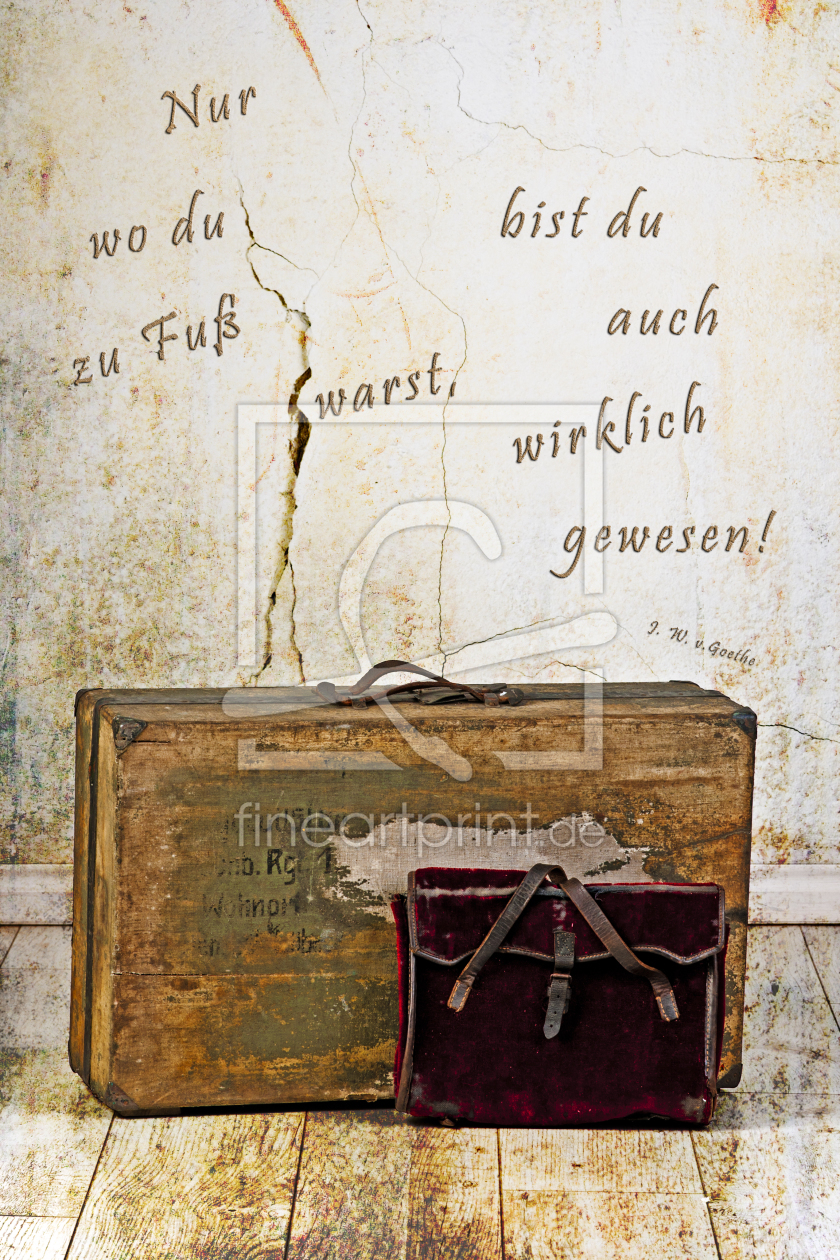 Nur
wo du
zu Fuß
warst,
bist du
auch
wirklich
gewesen!
J. W. v. Goethe
fineartprint.de
Rgt.
Wohnort